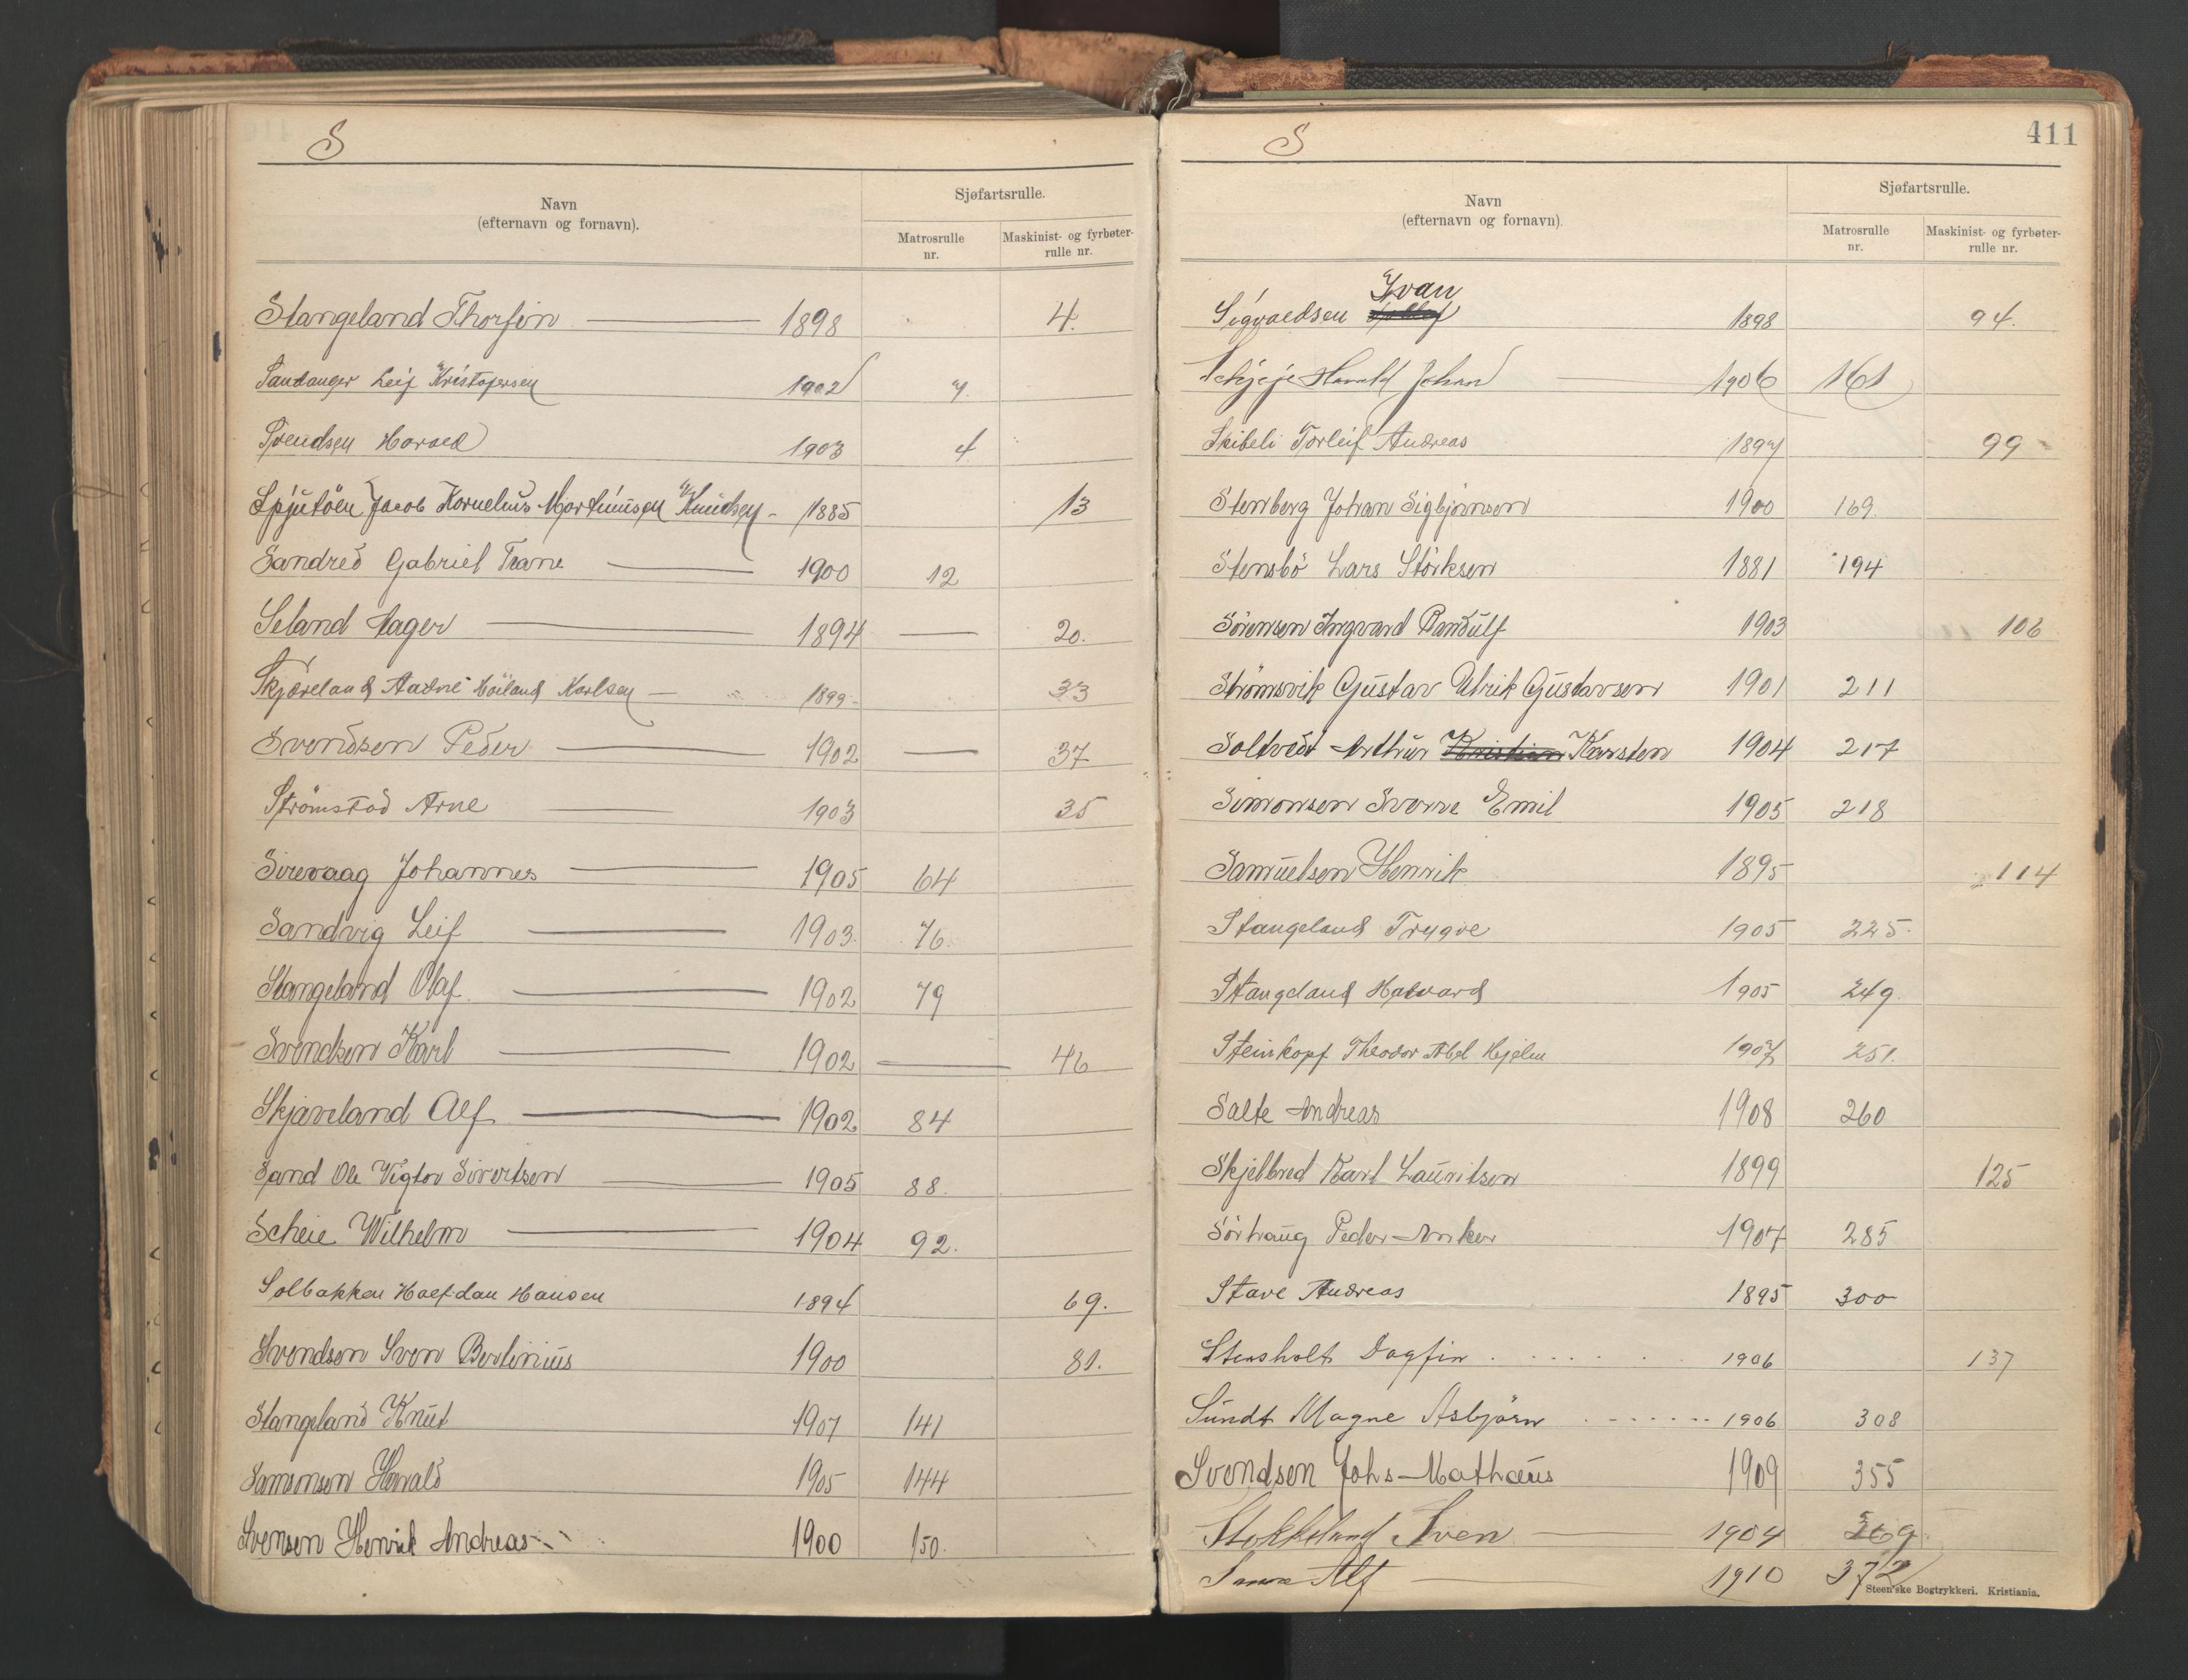 S
Navn
(efternavn og fornavn).
Sjøfartsrulle.
Matrosrulle
nr.
Maskinist- og fyrbøter-
rulle nr.
Stangeland Thorfin 1898 4.
Sandanger Leif Kristofersen 1902 7.
Svendsen Harald 1903 4
Spjutöen Jacob Kornelius Martinusen Knudsen - 1885 13
Sandred Gabriel Trane 1900 12
Seland Aager 1894 — 20.
Skjæreland Aadne Höiland Karlsen 1899 33
Svendsen Peder 1902 — 37
Strömstad Arne 1903 35
Sirevaag Johannes 1905 64
Sandvig Leif 1903 76.
Stangeland Olaf 1902 79
Svendsen Karl 1902 — 46
Skjæveland Alf 1902 84
Sand Ole Vigtor Sivertsen 1905 88.
Scheie Wilhelm 1904 92.
Solbakken Halfdan Hansen 1894 69.
Svendsen Sven Bertinius 1900 81.
Stangeland Knut 1907 141
Samsonsen Harald 1905 144
Svensen Henrik Andreas 1900 150.
S
411
Navn
(efternavn og fornavn).
Sjøfartsrulle.
Matrosrulle
nr.
Maskinist- og fyrbøter-
rulle nr.
Ivan
Sigvaldsen 1898 94.
Harald Johan 1906 161
Skibeli Torleif Andreas 1897 99
Stenberg Johan Sigbjörnsen 1900 169.
Stensbö Lars Störksen 1881 194
Sörensen Ingvard Randulf 1903 106
Strömsvik Gustav Ulrik Gustavsen 1901 211
Soltvedt Arthur Kristian Karsten 1904 217
Simonsen Sverre Emil 1905 218
Samuelsen Henrik 1895 114
Stangeland Trygve 1905 225.
Stangeland Halvard 1905 249.
Steinkopf Theodor Abel Hjelm 1907 251.
Salte Andreas 1908 260
Skjelbred Karl Lauritsen 1899 125
Sörhaug Peder Anker 1907 285
Stave Andreas 1895 300
Stensholt Dagfin . . . . . . 1906 137
Sundt Magne Asbjörn . - - - - - . . 1906 308
Svendsen Johs-Mathæus 1909 355
Stokkeland Sven 1904
Alf 1910 372
Steen'ske Bogtrykkeri. Kristiania.